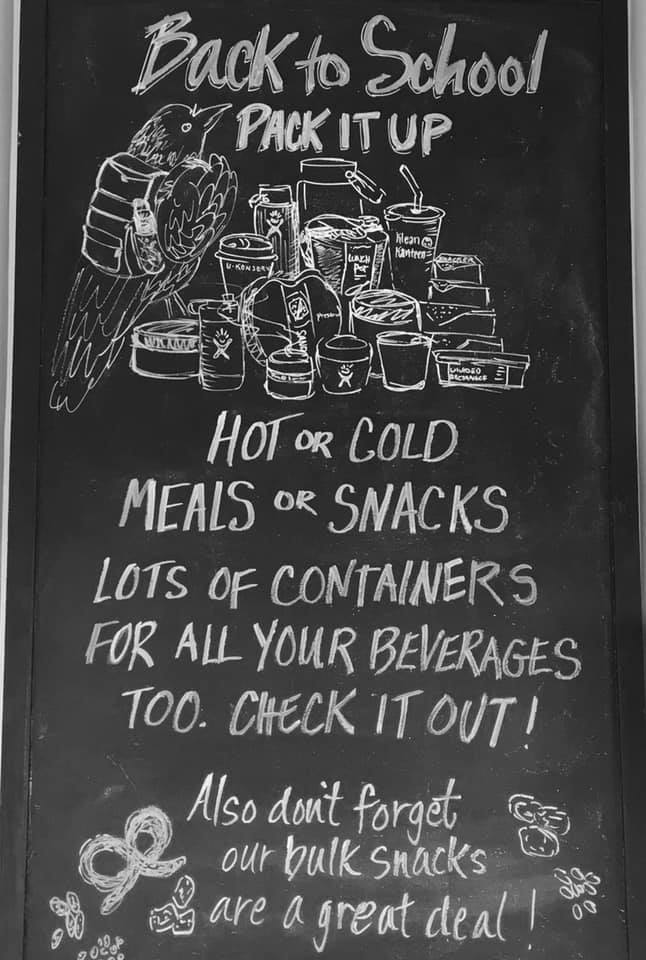 Back to School
PACK IT UP
U-KONSERV
LUNCH
POT
Klean
Kanteen
HOT OR COLD
MEALS OR SNACKS
LOTS OF CONTAINERS
FOR ALL YOUR BEVERAGES
TOO. CHECK IT OUT!
Also don't forget
our bulk snacks
are a great deal!